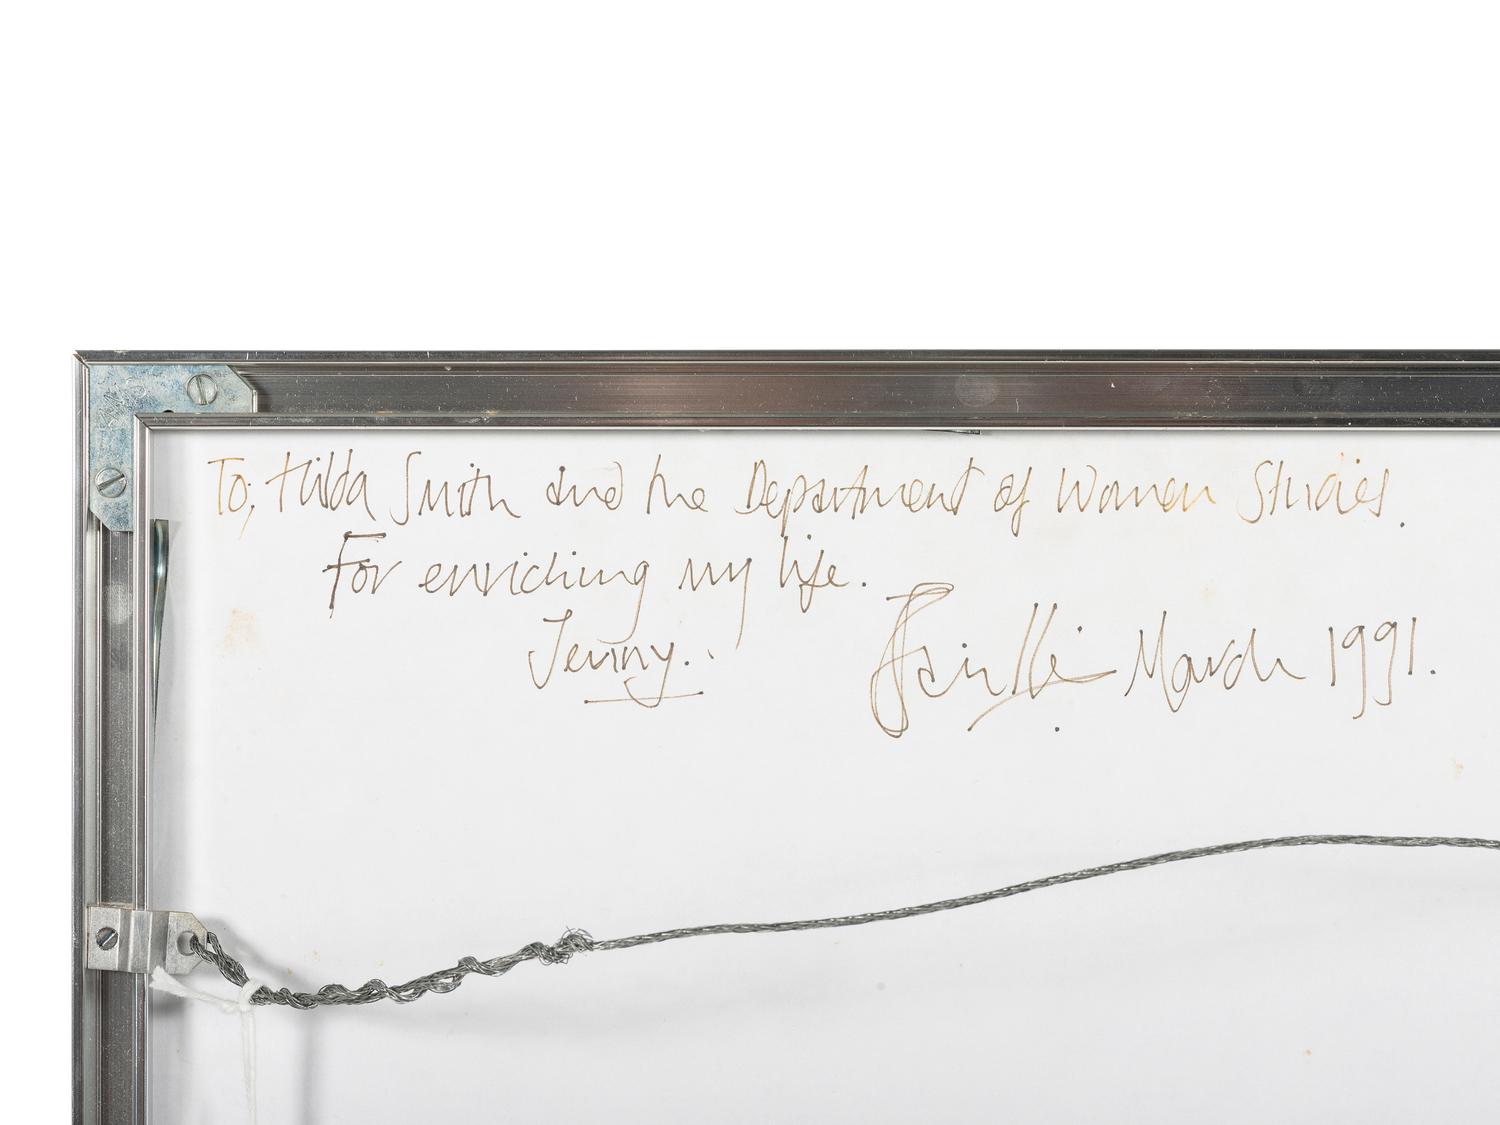 To; Hilda Smith and the Department of Women Studies.
For enriching my life.
Jenny.. March 1991.